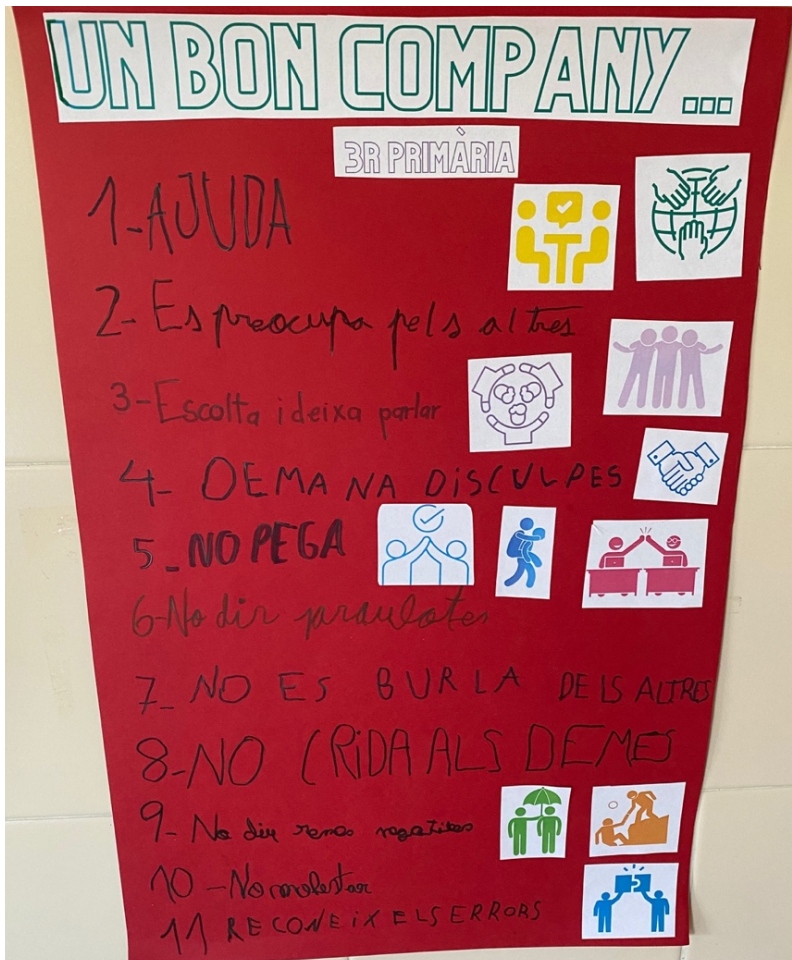 UN BON COMPANY...
3R PRIMÀRIA
1-AJUDA
2-Es preocupa pels altres
3-Escolta i deixa parlar
4- DEMANA DISCULPES
5_NO PEGA
6-No dir paraulotes
7_ NO ES BURLA DELS ALTRES
8-NO CRIDA ALS DEMES
9- No dir negatives
10 -No molestar
11 RECONEIX ELS ERRORS